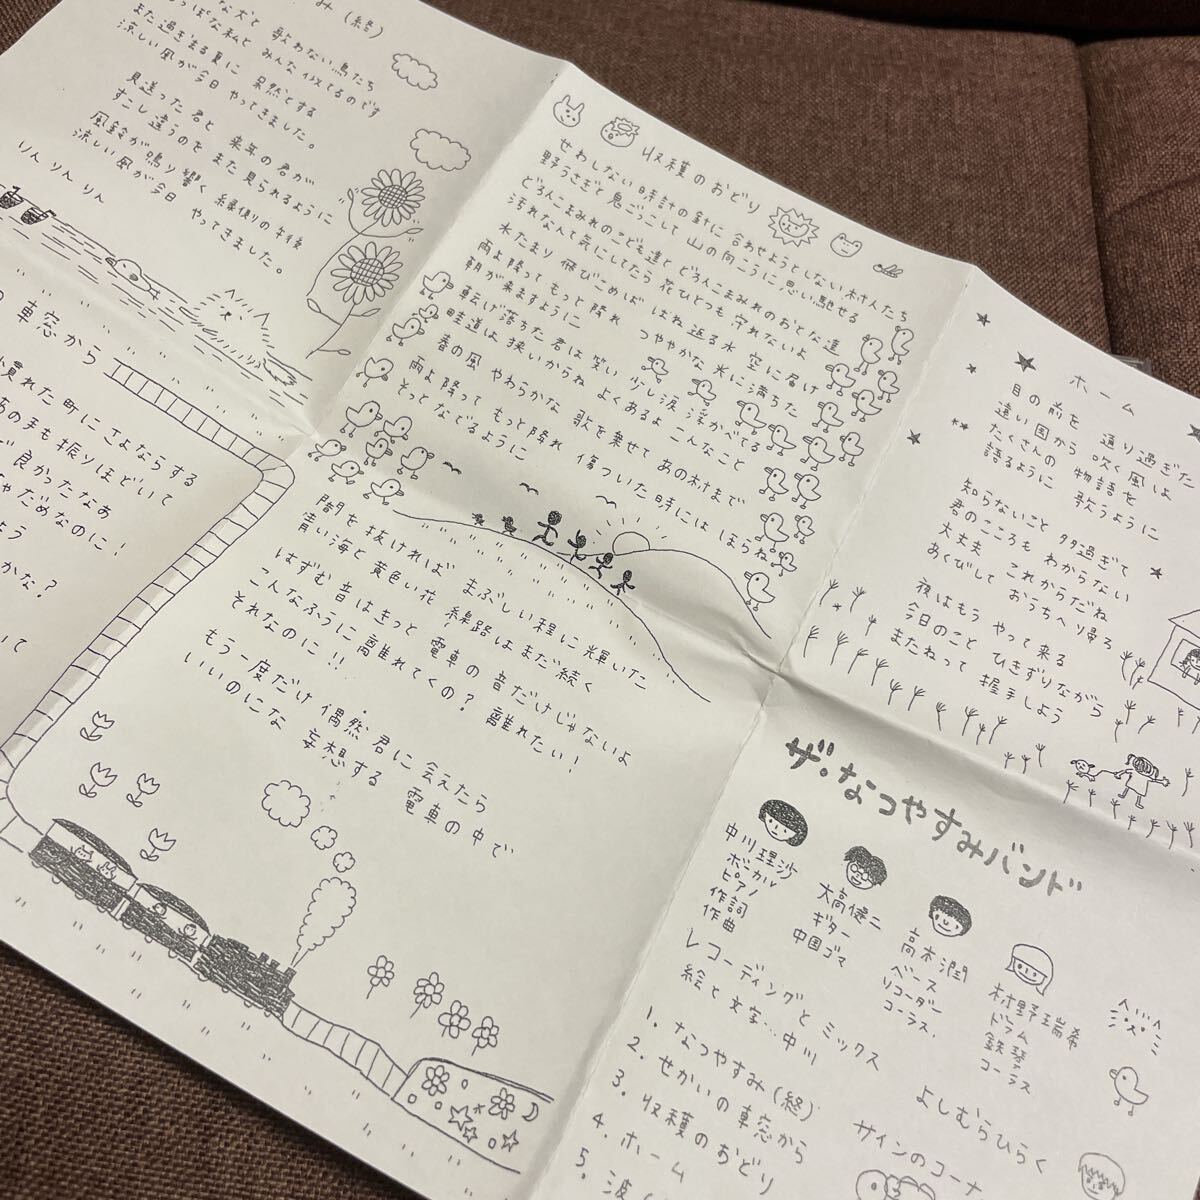 み(終)
な犬と 歌わない鳥たち
っぽな私と みんな似てるのです
また過ぎ去る夏に 呆然とする
涼しい風が今日 やってきました。
見送った君と 来年の君が
すこし違うのを また見られるように
風鈴が鳴り響く 縁側の午後
涼しい風が今日 やってきました。
りん りん りん
収穫のおどり
せわしない時計の針に 合わせようとしない村人たち
野うさぎと鬼ごっこして 山の向こうに思い馳せる
どろんこまみれのこども達と どろんこまみれのおとな達
汚れなんて気にしてたら 花ひとつも守れないよ
水たまり 飛びこめば はね返る水 空に届け
雨よ降って もっと降れ つややかな光に満ちた
朝が来ますように
転げ落ちた君は笑い 少し涙浮かべてる
畦道は狭いからね よくあるよこんなこと
春の風 やわらかな 歌を乗せて あの村まで
雨よ降って もっと降れ 傷ついた時には
そっとなでるように
ほらね
ホーム
目の前を 通り過ぎた
遠い国から 吹く風よ
たくさんの 物語を
語るように 歌うように
知らないこと 多過ぎて
君のこころも わからない
大丈夫 これからだね
あくびして おうちへ帰ろ
夜はもう やって来る
今日のこと ひきずりながら
またねって 握手しよう
車窓から
慣れた町にさよならする
あの手も振りほどいて
良かったなぁ
ゃだめなのに!
よう
かな?
いて
闇を 抜ければ まぶしい程に輝いた
青い海と黄色い花 線路はまだ続く
はずむ音はきっと 電車の音だけじゃないよ
こんなふうに 離れてくの? 離れたい!
それなのに!!
もう一度だけ 偶然 君に会えたら
いいのにな 妄想する 電車の中で
ザ・なつやすみバンド
中川理沙
ボーカル
ピアノ
作詞
作曲
大高健二
ギター
中国ゴマ
高木潤
ベース
リコーダー
コーラス.
村野瑞希
ドラム
鉄琴
コーラス
レコーディングとミックス
よしむらひらく
絵と文字…中川
サインのコーナ
1. なつやすみ(終)
2. せかいの車窓から
3. 収穫のおどり
4. ホーム
5. 波